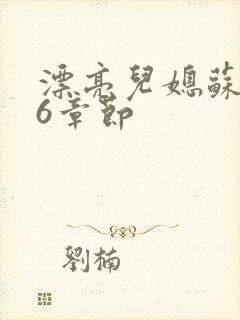 漂亮兒媳蘇
6章節
劉楠